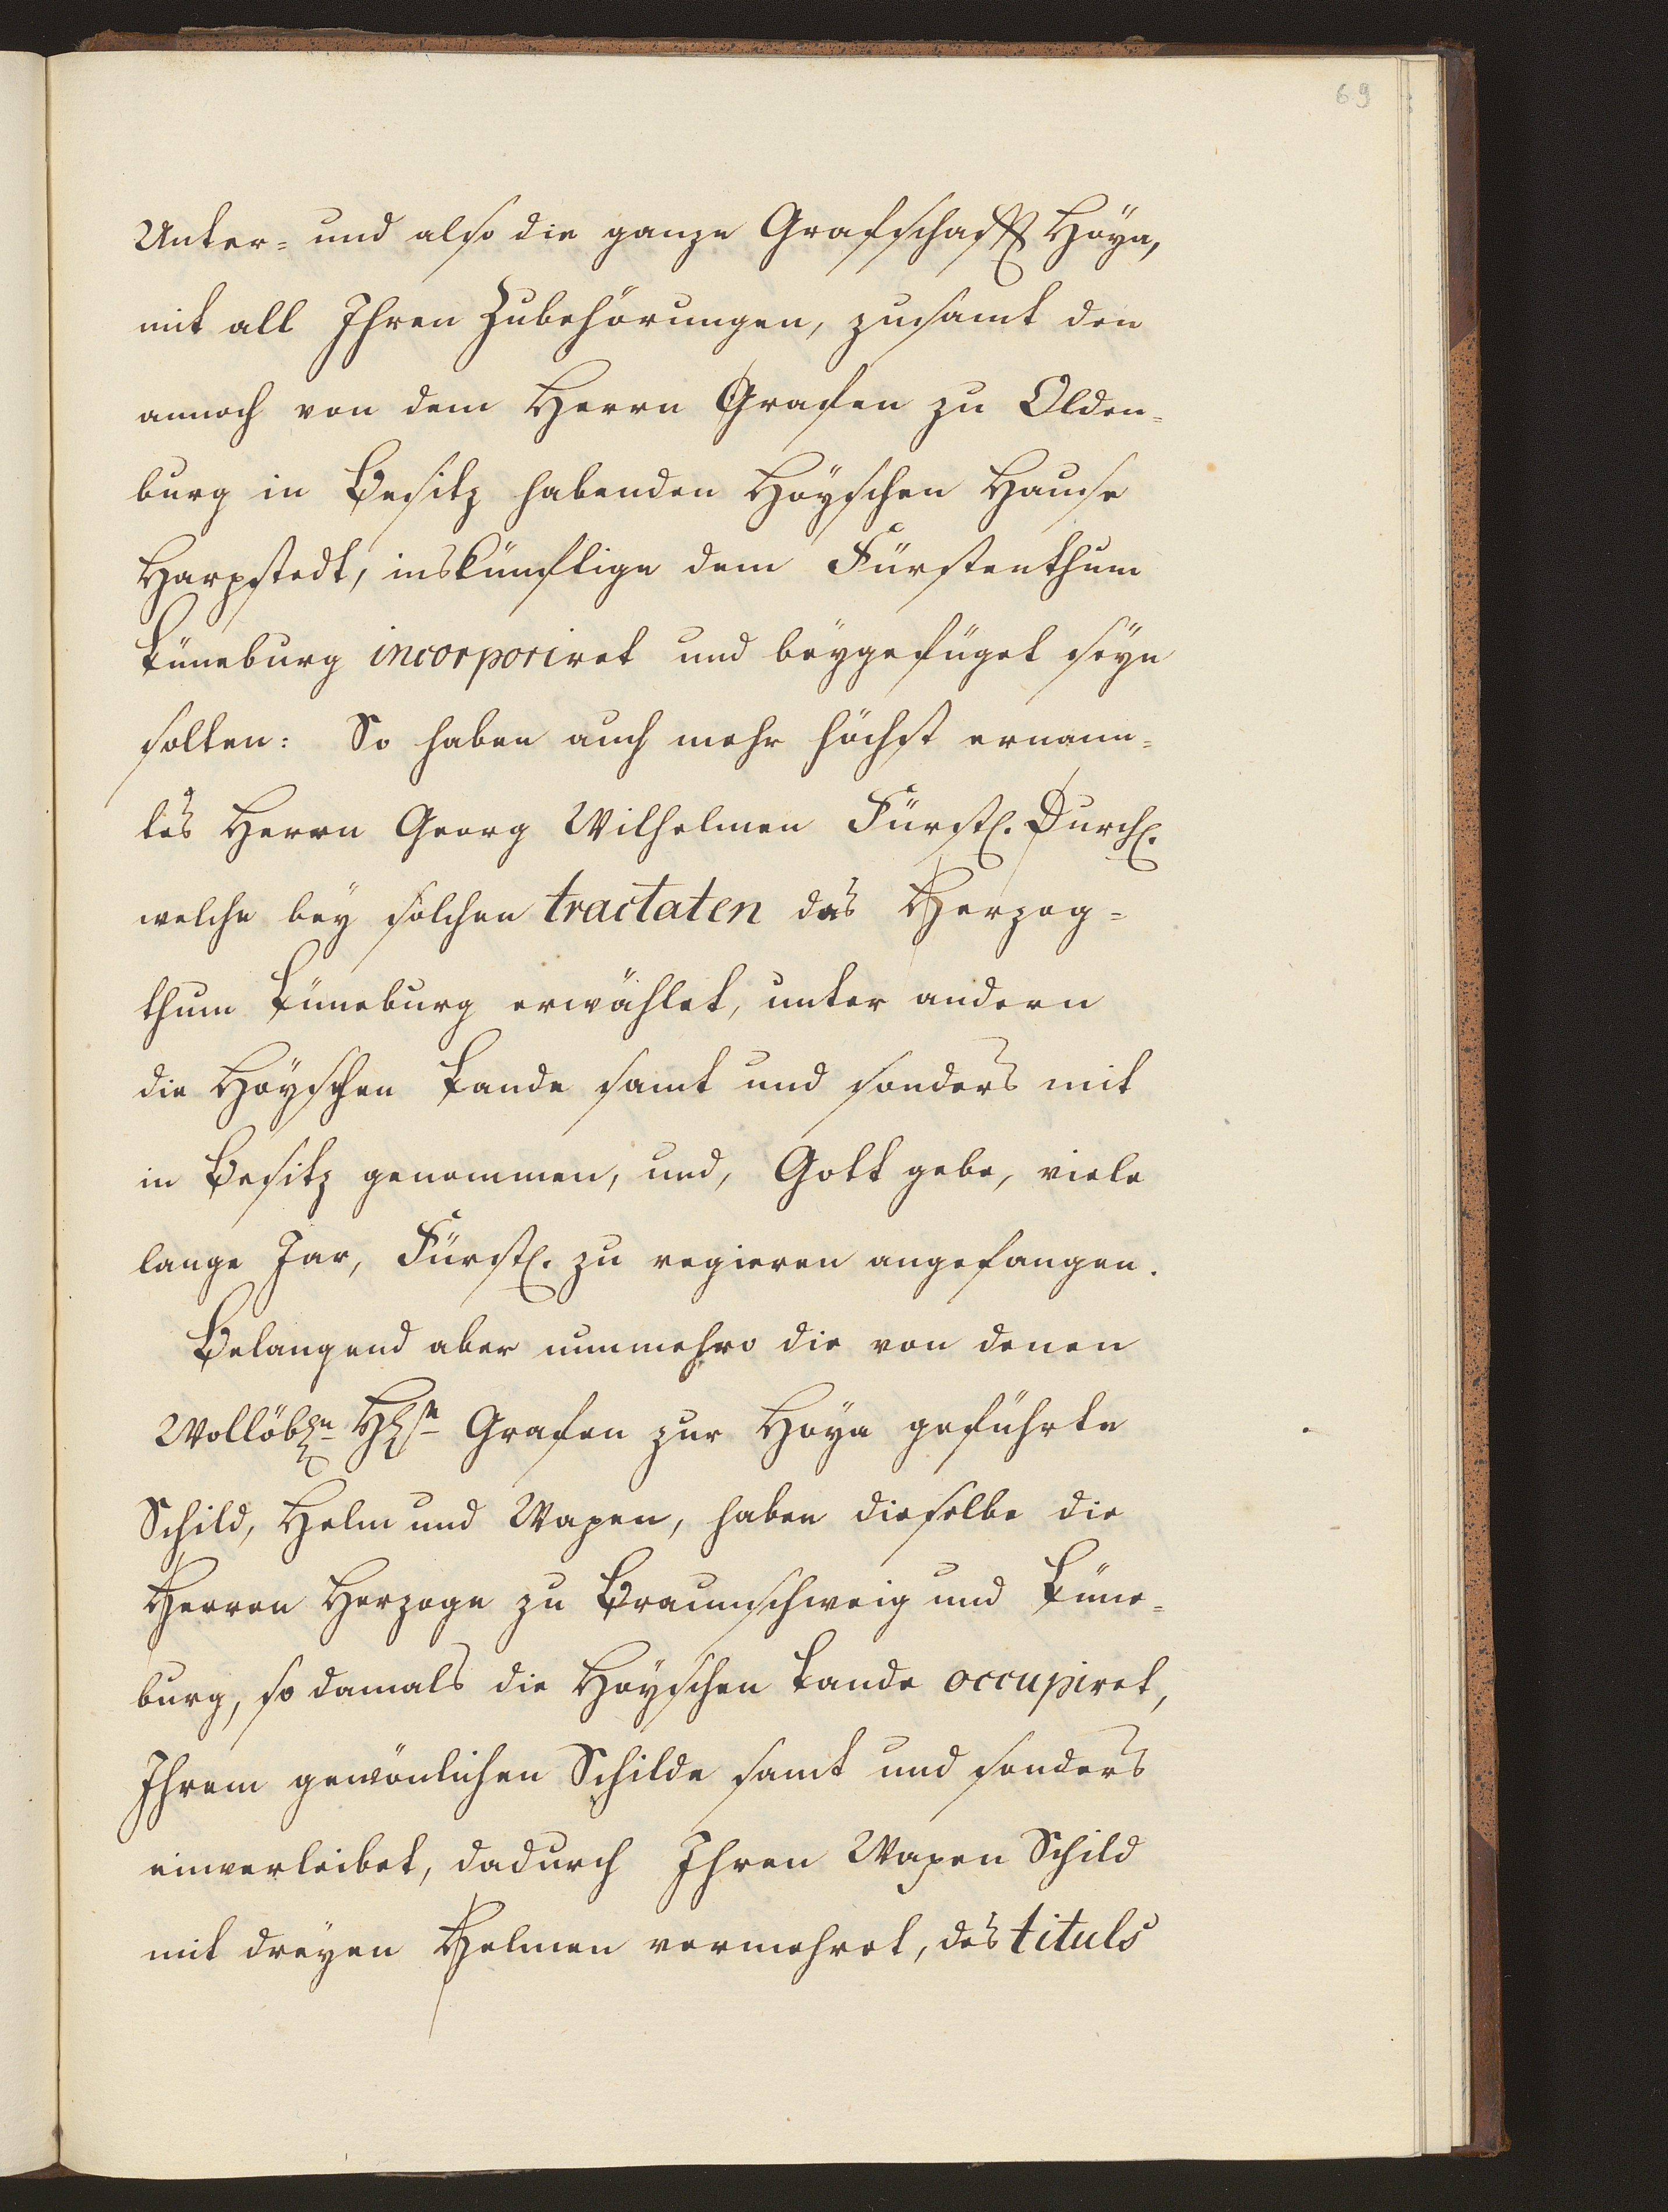 69
Unter= und also die ganze Grafschafft Hoÿa,
mit all Ihren Zubehörungen, zusamt den
annoch von dem Herrn Grafen zu Olden=
burg in Besitz habenden Hoÿschen Hause
Harpstedt, inskünfftige dem Fürstenthum
Lüneburg incorporiret und beÿgefüget seÿn
solten: So haben auch mehr höchst ernann=
tes Herrn Georg Wilhelmen Fürstl. Durchl.
welche beÿ solchen tractaten das Herzog=
thum Lüneburg erwählet, unter andern
die Hoÿschen Lande samt und sonders mit
in Besitz genommen, und, Gott gebe, viele
lange Jar, Fürstl. zu regieren angefangen.
Belangend aber nunmehro die von denen
Grafen zur Hoÿa geführte
Schild, Helm und Wapen, haben dieselbe die
Herren Herzoge zu Braunschweig und Lüne=
burg, so damals die Hoÿschen Lande occupiret,
Ihrem gewönlichen Schilde samt und sonders
einverleibet, dadurch Ihren Wapen Schild
mit dreÿen Helmen vermehret, des tituls